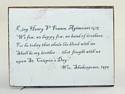 King Henry V
We few, we happy few, we band of brothers
For he today that sheds his blood with me
Shall be my brother - that fought with us
upon St. Crispin's Day
Wm. Shakespeare, 1599